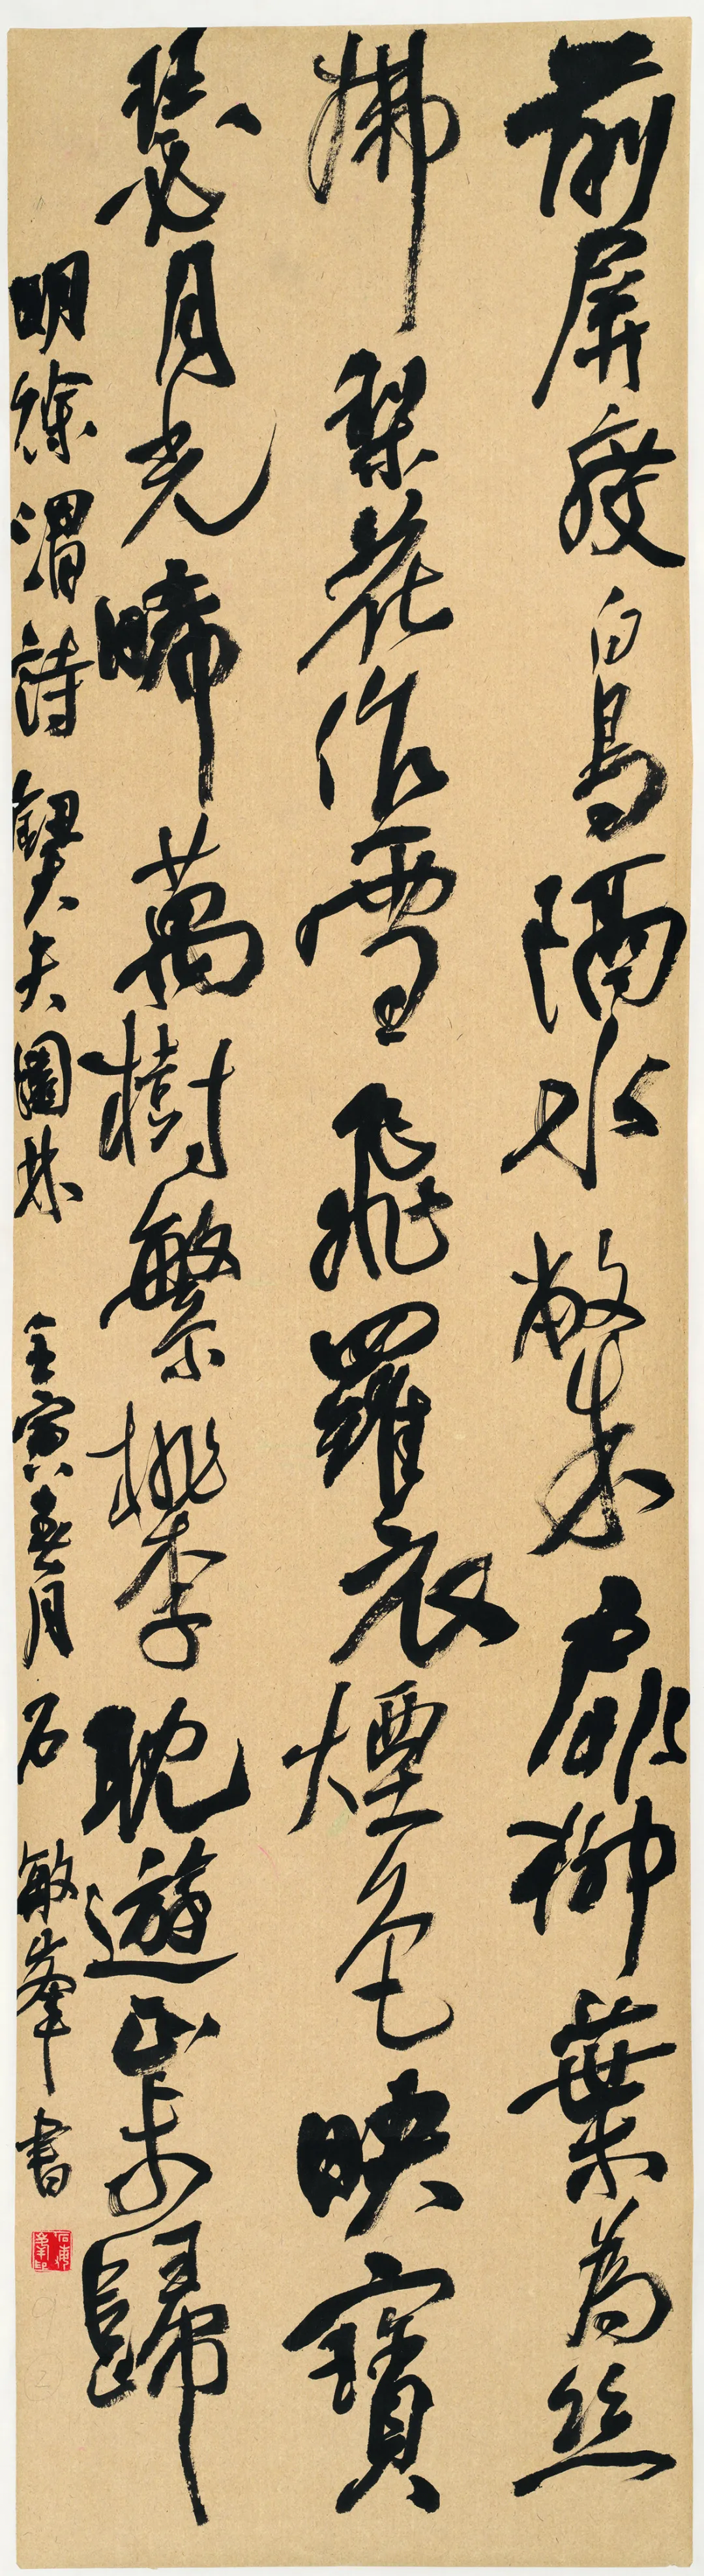 前屏度白鳥隔水敞朱扉柳葉為絲
拂梨花作雪飛羅衣煙色映寶
瑟月光晞萬樹繁桃李耽遊步歸
明徐渭詩 大夫園林 壬寅春月 石敏峯書